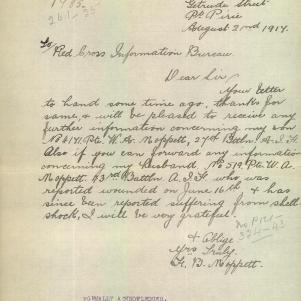 1785.
Getrude Street
Pt. Pirie
August 2nd 1917.
To
Red Cross Information Bureau.
Dear Sir
Your letter
to hand some time ago, thanks for
same, & will be pleased to receive any
further information concerning my son
No 6141. Pte. W. A. Moppett, 27th Battn. A.I.F.
Also if you can forward any information
concerning my husband, No 519, Pte. W. A.
Moppett, 43rd Battln. A.I.F who, was
reported wounded on June 16th & has
since been reported suffering from shell
shock, I will be very grateful.
& Oblige
Yrs Truly.
B. Moppett.
FORMALLY ACKNOWLEDGED.